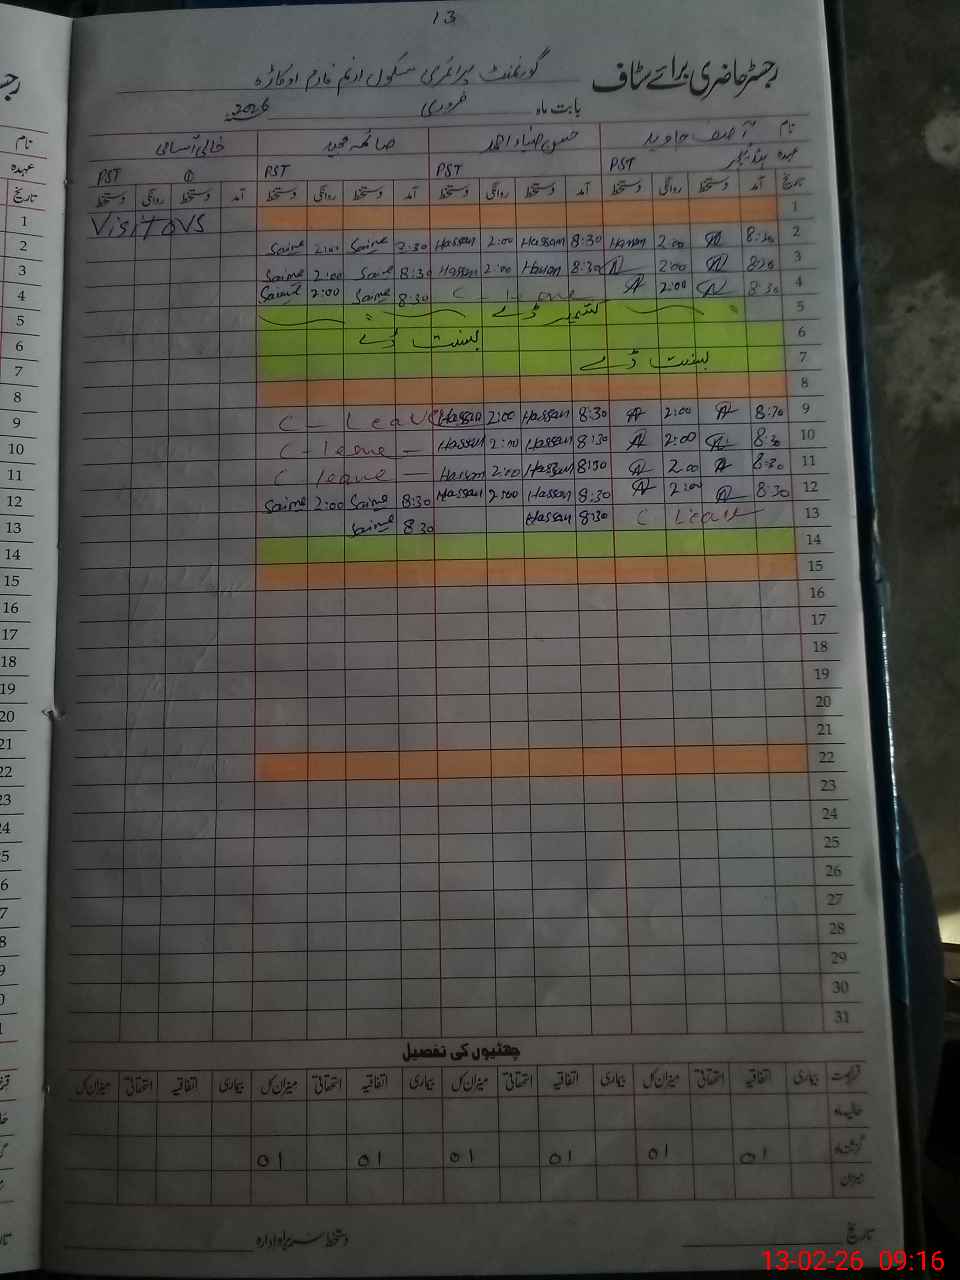 13
رجسٹر حاضری برائے سٹاف گورنمنٹ پرائمری سکول خادم اوکاڑہ
بابت ماہ فروری 2026
نام آصف جاوید حسن ضیاء احمد صائمہ مجید خالی آسامی
عہدہ ہیڈ ٹیچر PST PST PST PST
تاریخ آمد دستخط روانگی دستخط آمد دستخط روانگی دستخط آمد دستخط روانگی دستخط آمد دستخط روانگی دستخط
1 Visitors
2 8:30 2:00 Hassan 8:30 Hassan 2:00 Hassan 8:30 Saima 2:00 Saima
3 8:30 2:00 8:30 Hassan 2:00 Hassan 8:30 Saima 2:00 Saima
4 8:30 2:00 C - leave 8:30 Saima 2:00 Saima
5 کشمیر ڈے
6 بسنت ڈے
7 بسنت ڈے
8
9 8:30 2:00 8:30 Hassan 2:00 Hassan C - Leave
10 8:30 2:00 8:30 Hassan 2:00 Hassan C - leave -
11 8:30 2:00 8:30 Hassan 2:00 Hassan C leave -
12 8:30 2:00 8:30 Hassan 2:00 Hassan 8:30 Saima 2:00 Saima
13 C Leave 8:30 Hassan 8:30 Saima
14
15
16
17
18
19
20
21
22
23
24
25
26
27
28
29
30
31
چھٹیوں کی تفصیل
بیماری اتفاقیہ استحقاقی میزان کل بیماری اتفاقیہ استحقاقی میزان کل بیماری اتفاقیہ استحقاقی میزان کل بیماری اتفاقیہ استحقاقی میزان کل
حالیہ ماہ
گزشتہ ماہ 01 01 01 01 01 01
میزان
تاریخ دستخط سربراہ ادارہ
13-02-26 09:16